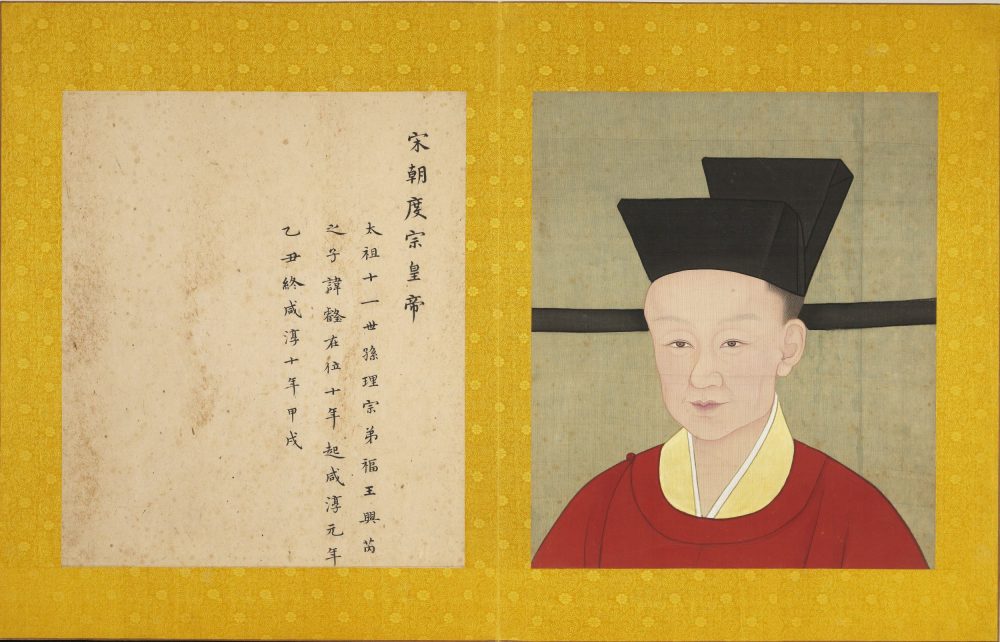 宋朝度宗皇帝
太祖十一世孫理宗弟福王與芮
之子諱𥔲在位十年起咸淳元年
乙丑終咸淳十年甲戌